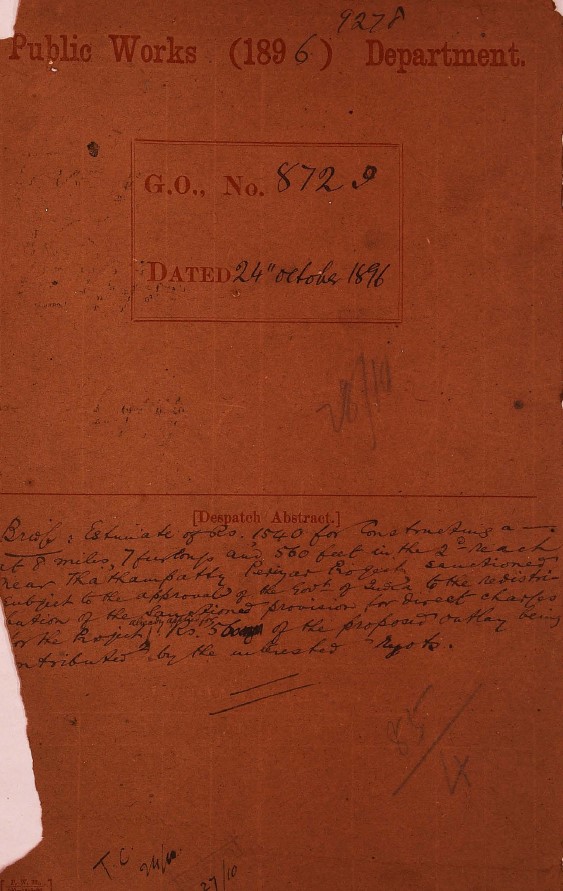 9278
Public Works (1896) Department.
G.O., No. 872 I
DATED 24" october 1896
28/10
[Despatch Abstract.]
Brief: Estimate of Rs. 1540 for Constructing a —
at 8 miles, 7 furlongs and 560 feet in the 2d reach
near Thathampatty Periyar Project sanctioned
subject to the approval of the Govt of India to the redistri-
ution of the Sanctioned provision for direct charges
for the Project, Rs. of the proposed outlay being
ntributed by the interested Ryots.
85/IX
T.C. 24/10
27/10